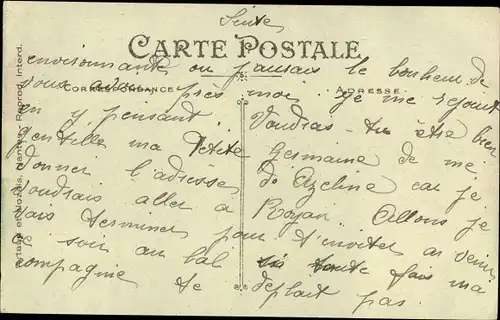 Suite
CARTE POSTALE
CORRESPONDANCE
ADRESSE
environnante où j'aurais le bonheur de
vous avoir près moi. Je me rejouit
en y pensant. Voudras-tu être bien
gentille ma Petite Germaine de me
donner l'adresse de Azeline car je
voudrais aller a Royan. Allons je
vais terminer pour t'inviter a venir
ce soir au bal si toute fois ma
compagnie te déplait pas.
Nantes. Reprod. Interd.